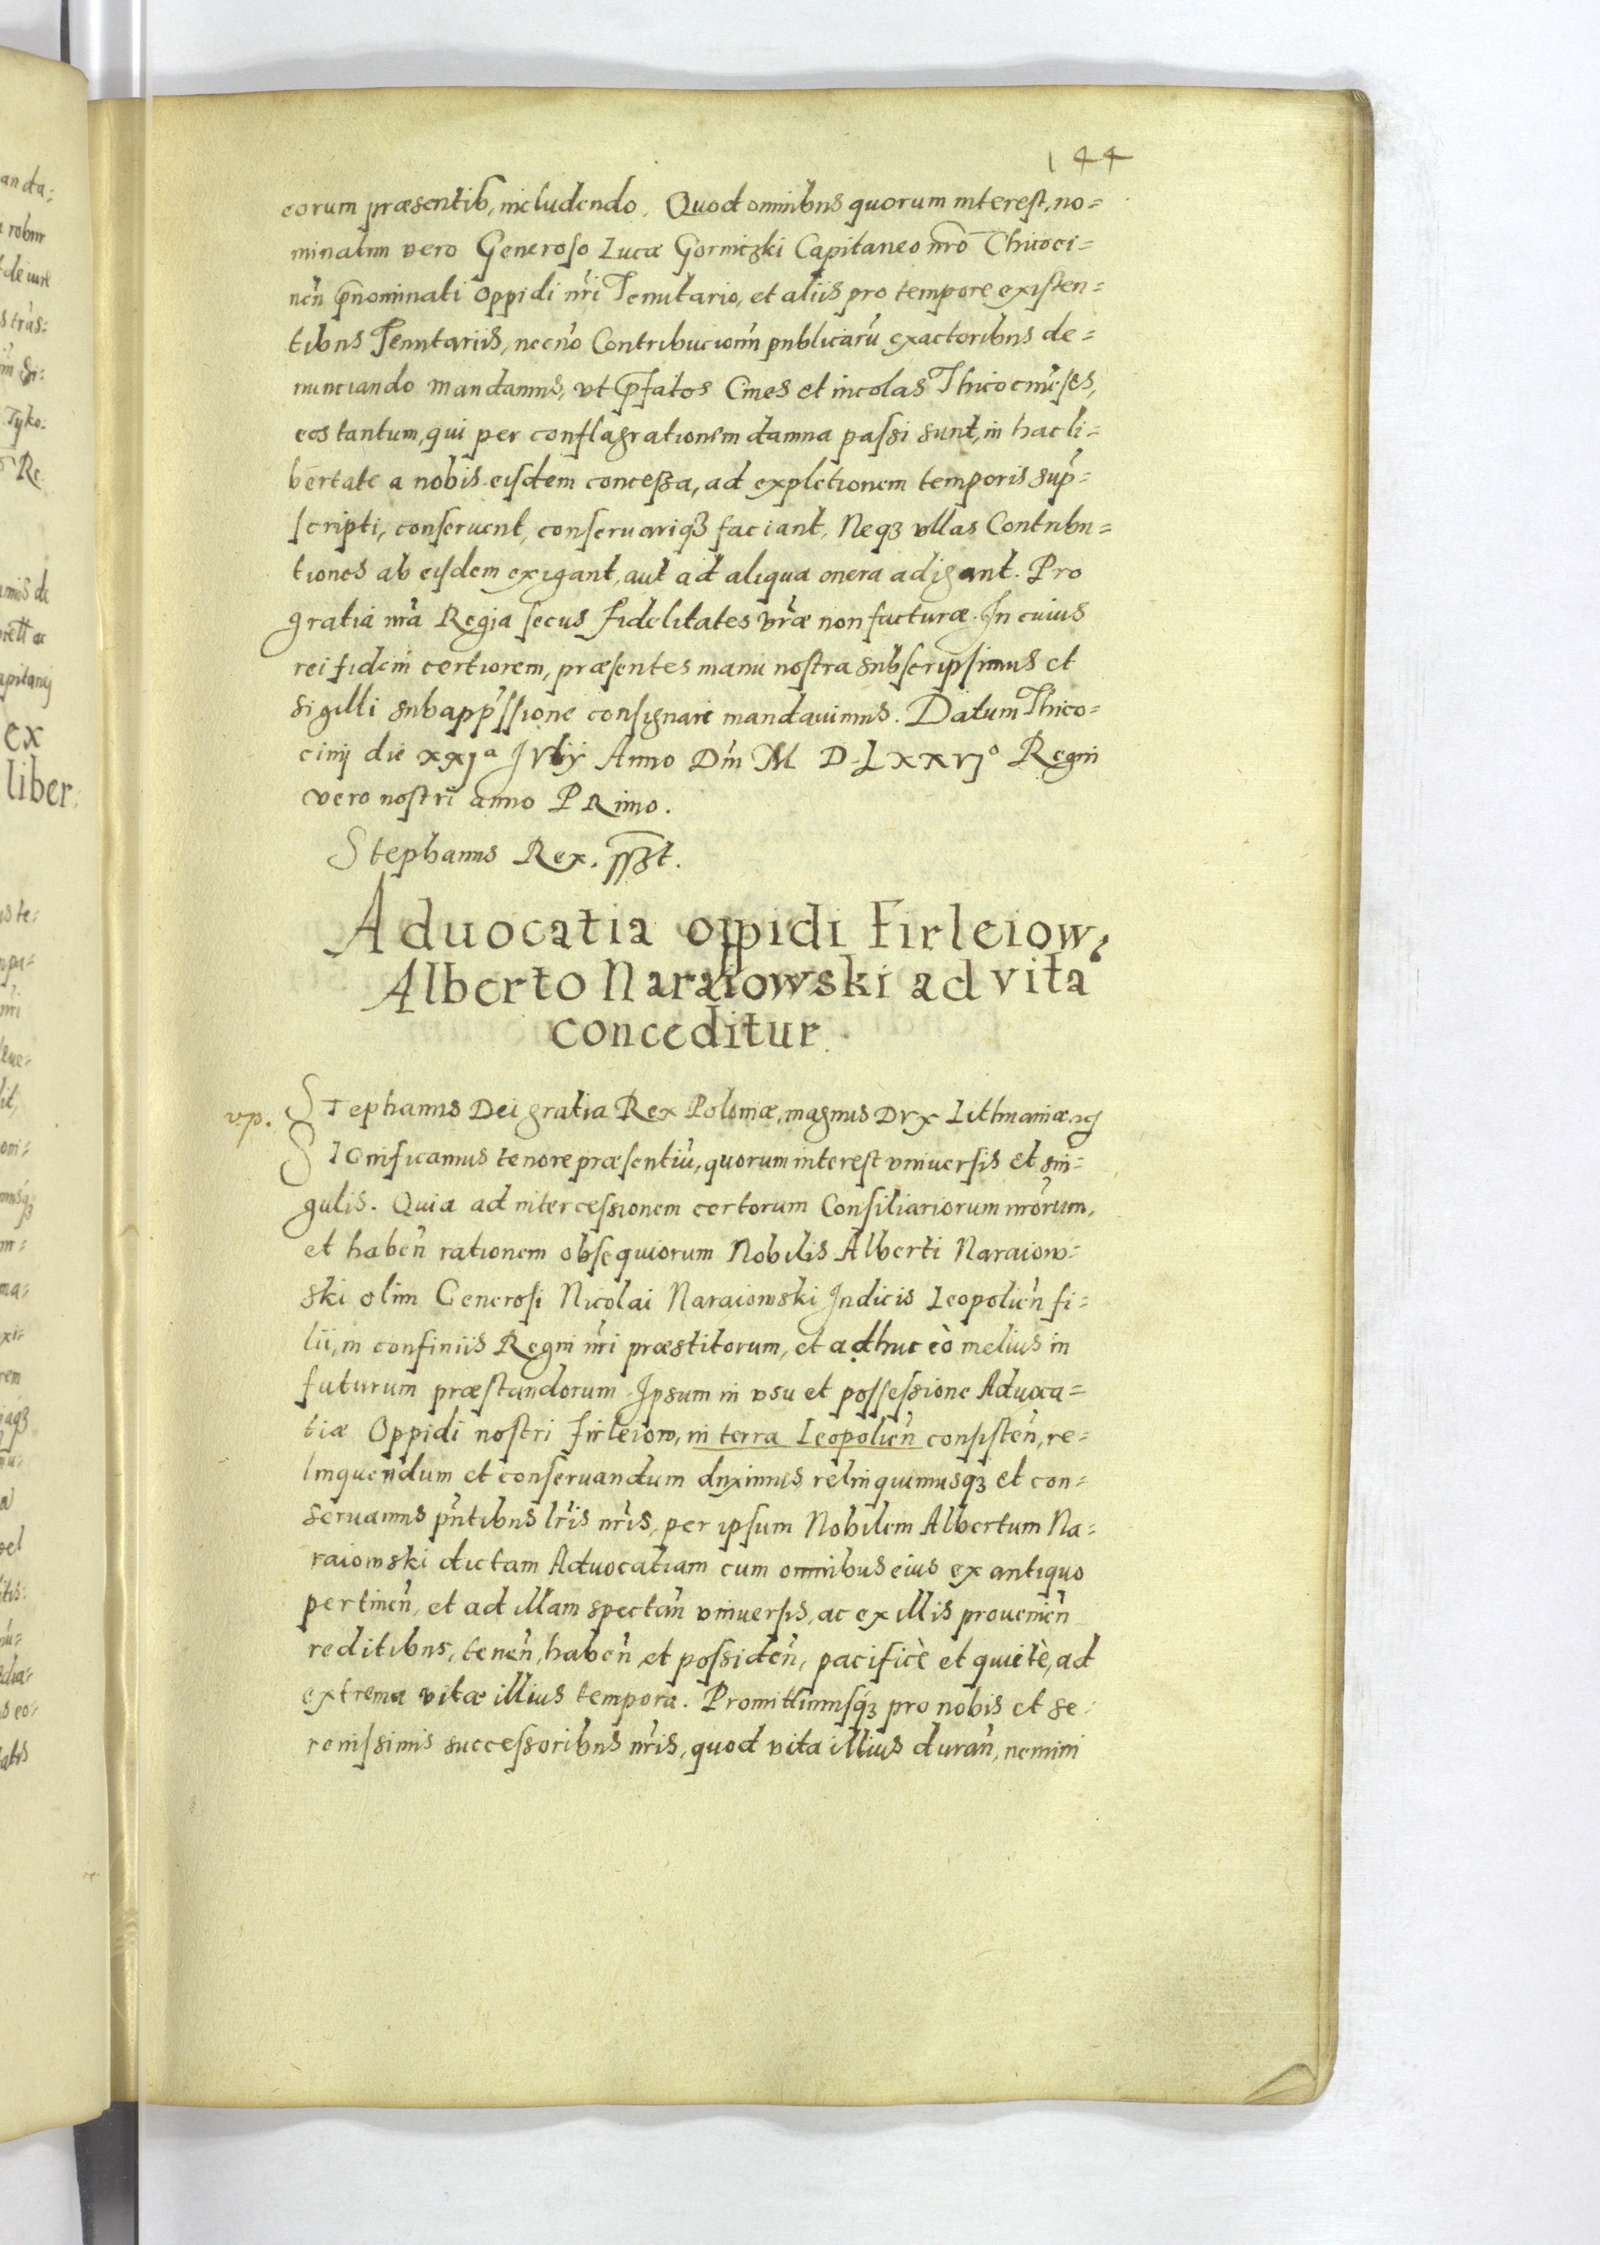 144
eorum præsentib, includendo. Quod omnibus quorum interest, no=
minatim vero Generoso Lucæ Gorniczki Capitaneo nr̃o Thicoci=
nen̄ p̄nominati Oppidi nr̃i Tenutario, et aliis pro tempore existen=
tibus Tenutariis, necno͂ Contribucionu͂ publicaru͂ exactoribus de=
nunciando mandamus, vt p̄fatos Ciues et incolas Thicocine͂ses,
eos tantum, qui per conflagrationem damna passi sunt, in hac li=
bertate a nobis eisdem concessa, ad expletionem temporis sup̃=
scripti, conseruent, conseruariqȝ faciant. Neqȝ vllas Contribu=
tiones ab eisdem exigant, aut ad aliqua onera adigant. Pro
gratia nr̃a Regia secus fidelitates vr̃æ non facturæ. In cuius
rei fidem certiorem, præsentes manu nostra subscripsimus et
sigilli subapp̃ssione consignare mandauimus. Datum Thico=
cinij die xxjª Julij Anno Dn̄i M D LXXVJº Regni
vero nostri anno PRimo.
Stephanus Rex. sszt.
Aduocatia oppidi Firleiow,
Alberto Naraiowski ad vita͂
conceditur
vp.
Stephanus Dei gratia Rex Poloniæ, magnus Dvx Lithuaniæ
SIGnificamus tenore præsentiu͂, quorum interest vniuersis et sin=
gulis. Quia ad intercessionem certorum Consiliariorum nr̃orum,
et haben̄ rationem obsequiorum Nobilis Alberti Naraiow=
ski olim Generosi Nicolai Naraiowski Judicis Leopolien̄ fi=
lii, in confiniis Regni nr̃i præstitorum, et adhuc eò melius in
futurum præstandorum. Ipsum in vsu et possessione Aduoca=
tiæ Oppidi nostri firleiow, in terra Leopolien̄ consisten̄, re=
linquendum et conseruandum duximus relinquimusqȝ et con=
seruamus pn̄tibus lr̃is nr̃is, per ipsum Nobilem Albertum Na=
raiowski dictam Aduocatiam cum omnibus eius ex antiquo
pertinen̄, et ad illam spectan̄ vniuersis, ac ex illis prouenien̄
reditibus, tenen̄, haben̄ et possiden̄, pacificè et quietè, ad
extrema vitæ illius tempora. Promittimusqȝ pro nobis et se=
renissimis successoribus nr̃is, quod vita illius duran̄, nemini